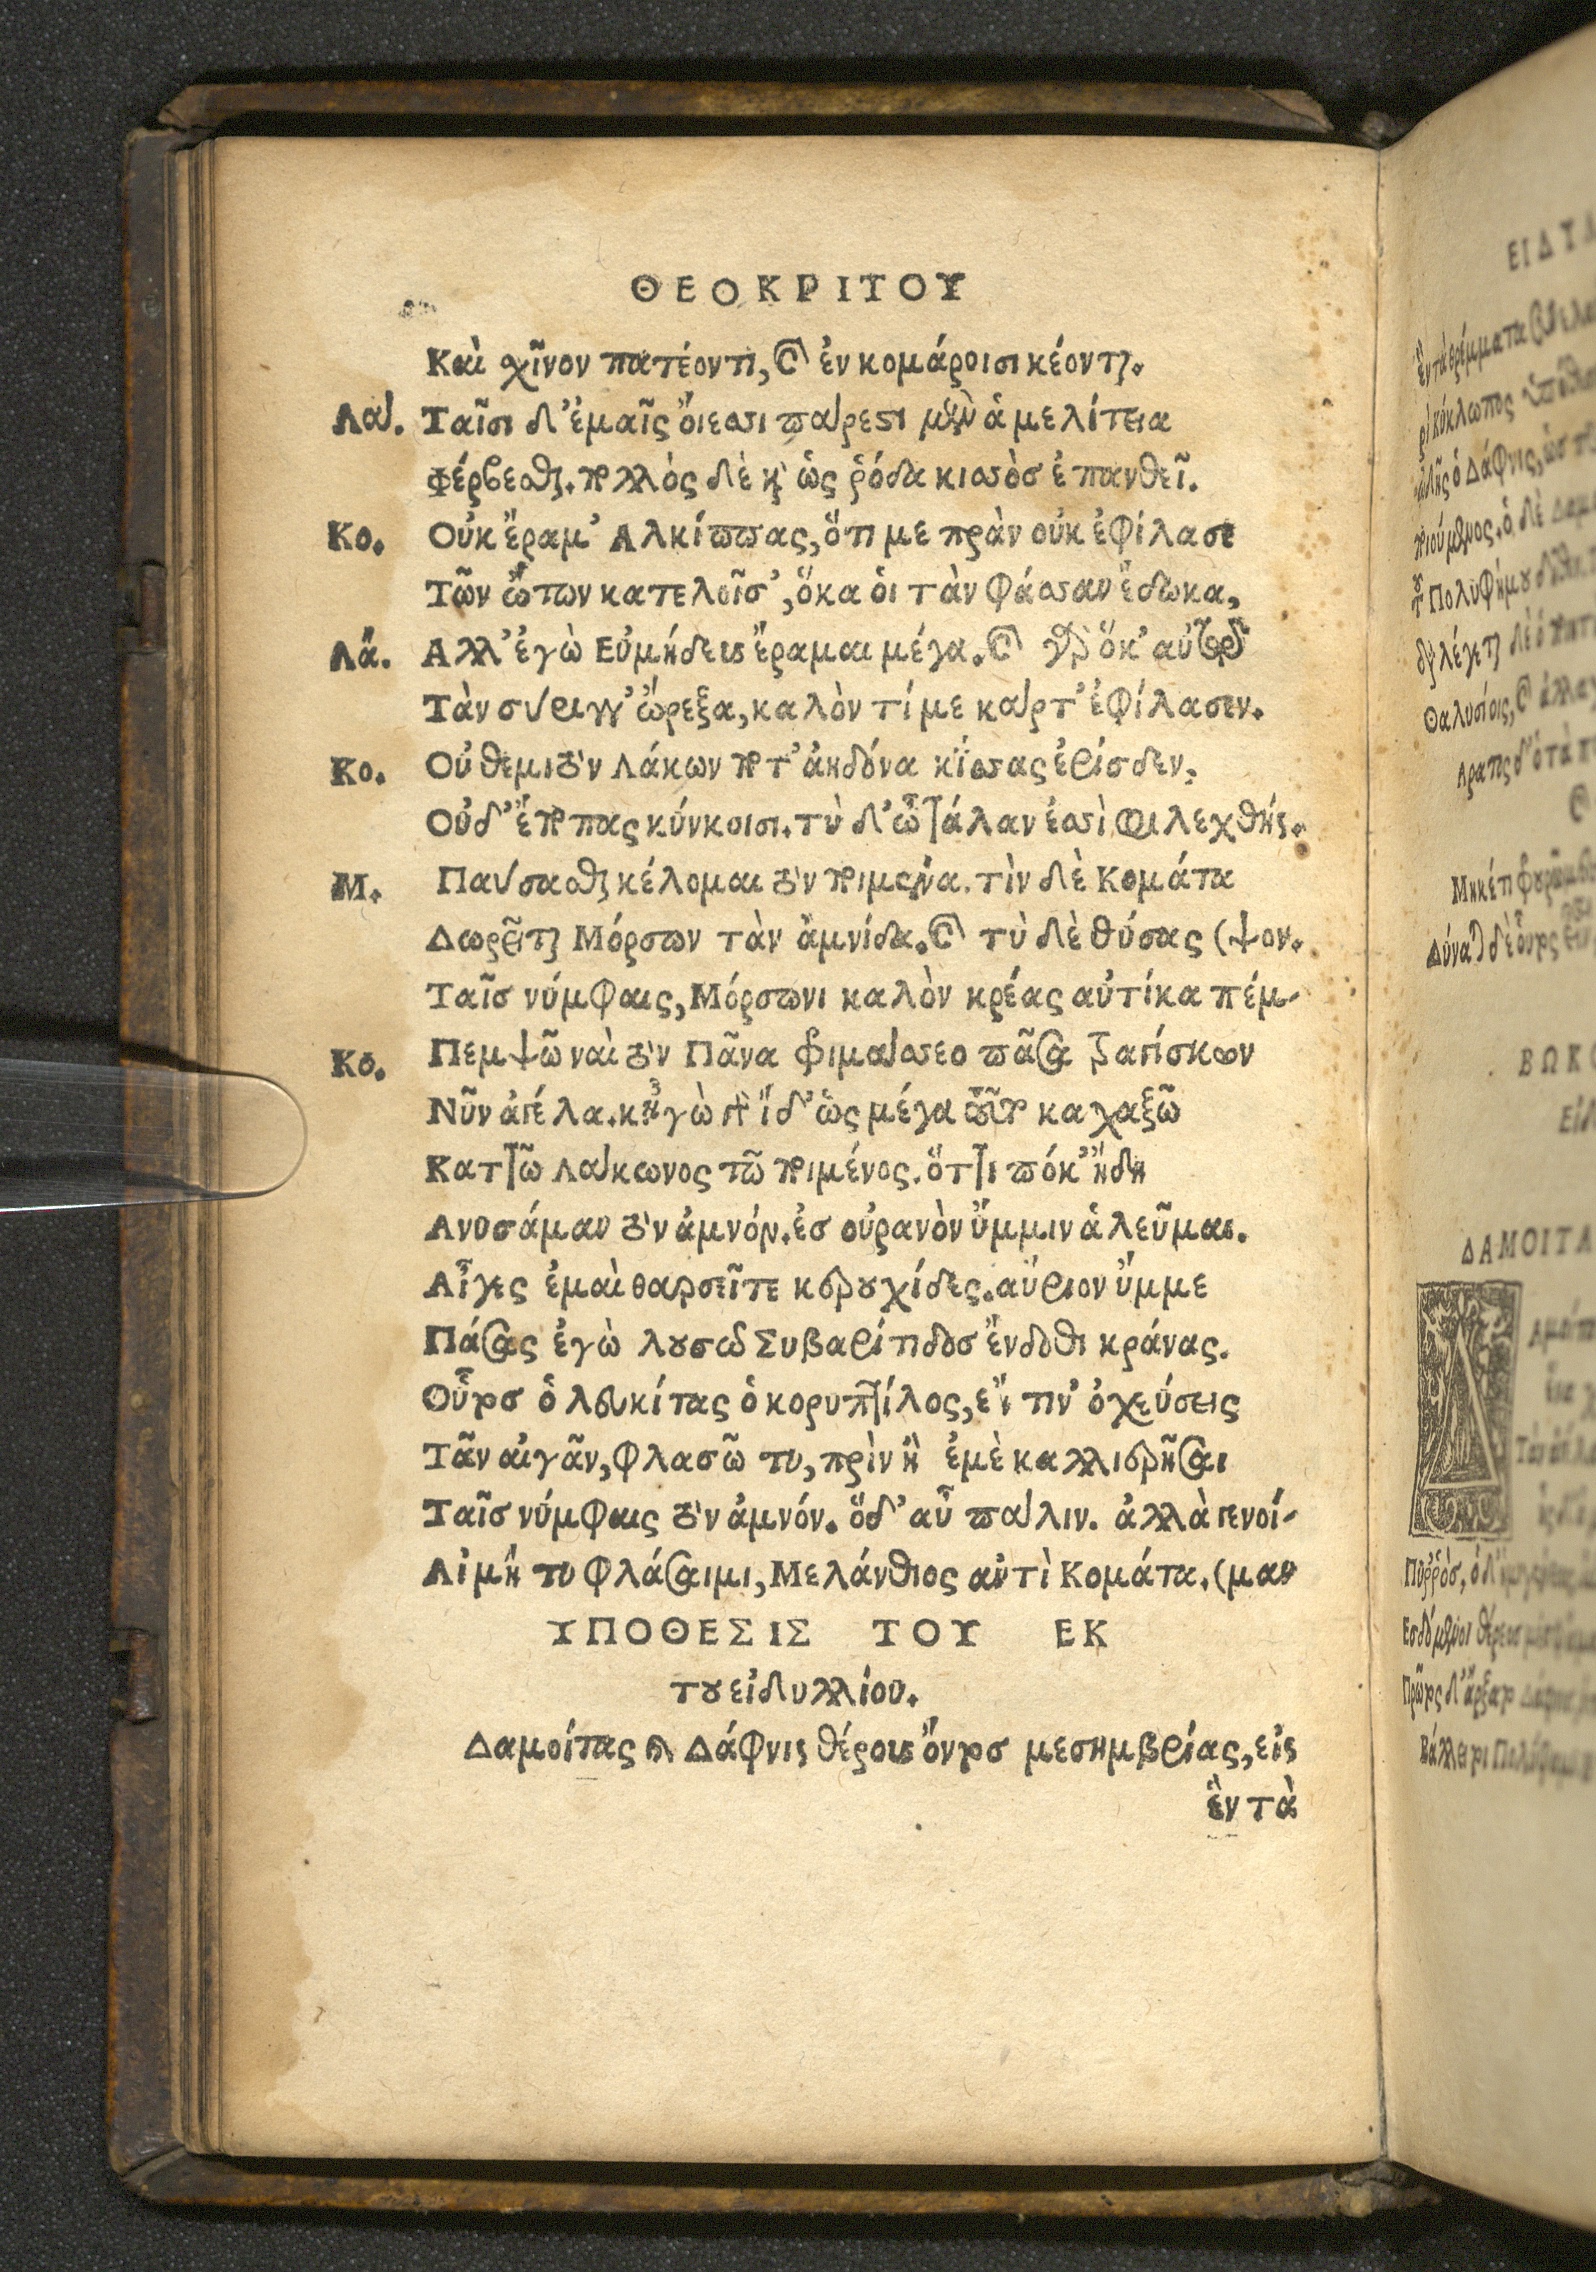 ΘΕΟΚΡΙΤΟΥ
Καὶ χῖνον πατέοντι, καὶ ἐν κομάροισι κέονται.
Λα. Ταῖσι δ' ἐμαῖς ὄιεσσι πάρεστι μὲν ἁ μελίτεια
φέρβεσθαι. πολλὸς δὲ καὶ ὡς ῥόδα κισσὸσ ἐπανθεῖ.
Κο. Οὐκ ἔραμ' Αλκίππας, ὅτι με πρὰν οὐκ ἐφίλασε
Τῶν ὤτων κατελοῖσ', ὅκα οἱ τὰν φάσσαν ἔδωκα,
Λά. Αλλ' ἐγὼ Εὐμήδευς ἔραμαι μέγα. καὶ γὰρ ὅκ' αὐτῷ
Τὰν σύριγγ' ὤρεξα, καλὸν τί με κάρτ' ἐφίλασεν.
Κο. Οὐ θεμιτὸν Λάκων ποτ' ἀηδόνα κίσσας ἐρίσδεν,
Οὐδ' ἔποπας κύκνοισι. τὺ δ' ὦ τάλαν ἐσσὶ φιλεχθής.
Μ. Παύσασθαι κέλομαι τὸν ποιμένα. τὶν δὲ Κομάτα
Δωρεῖται Μόρσων τὰν ἀμνίδα. καὶ τὺ δὲ θύσας (ψον.
Ταῖσ νύμφαις, Μόρσωνι καλὸν κρέας αὐτίκα πέμ-
Κο. Πεμψῶ ναὶ τὸν Πᾶνα φιμάσσεο πᾶσα τραγίσκων
Νῦν ἀγέλα. κἠγὼ γὰρ ἴδ' ὡς μέγα τοῦτο καχαξῶ
Καττῶ Λάκωνος τῶ ποιμένος. ὅττι πόκ' ἤδη
Ανυσάμαν τὸν ἀμνόν. ἐσ οὐρανὸν ὔμμιν ἁλεῦμαι.
Αἶγες ἐμαὶ θαρσεῖτε κερουχίδες. αὔριον ὔμμε
Πάσας ἐγὼ λουσῶ Συβαρίτιδοσ ἔνδοθι κράνας.
Οὗτοσ ὁ λευκίτας ὁ κορυπτίλος, εἴ τιν' ὀχεύσεις
Τᾶν αἰγᾶν, φλασῶ τυ, πρὶν ἢ ἐμὲ καλλιερῆσαι
Ταῖσ νύμφαις τὸν ἀμνόν. ὅδ' αὖ πάλιν. ἀλλὰ γενοί-
Αἰ μή τυ φλάσαιμι, Μελάνθιος αὐτὶ Κομάτα. (μαν
ΥΠΟΘΕΣΙΣ ΤΟΥ ΕΚ
του εἰδυλλίου.
Δαμοίτας καὶ Δάφνις θέρους ὄντοσ μεσημβρίας, εἰς
ἓν τὰ